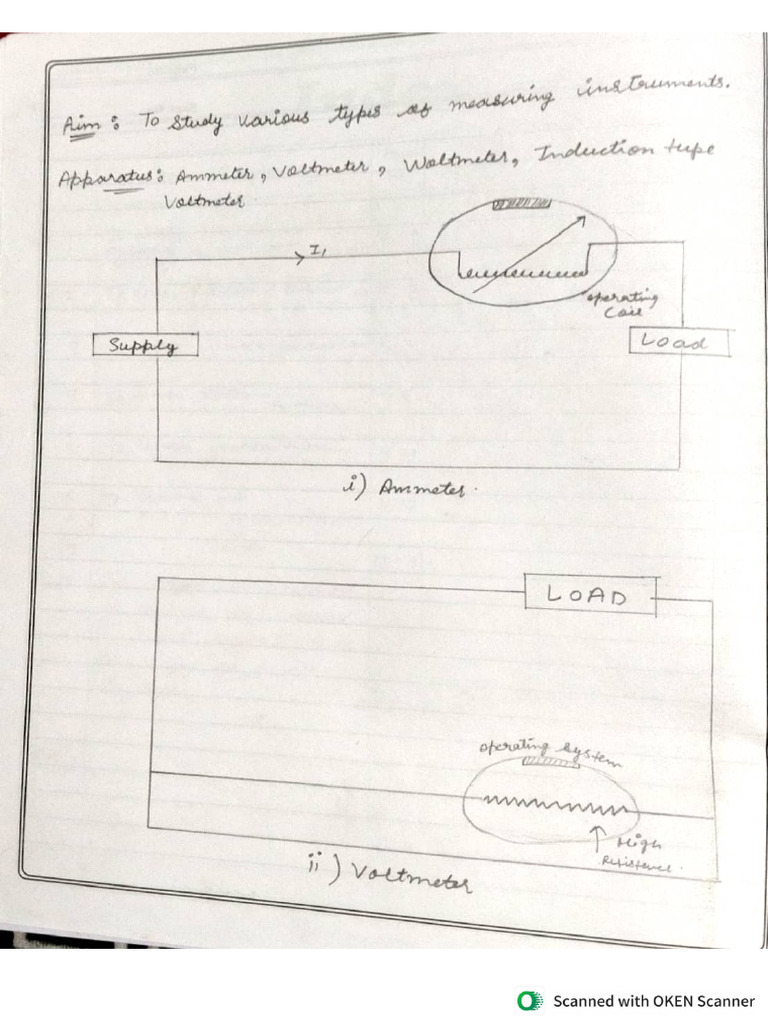 Aim: To study various types of measuring instruments.
Apparatus: Ammeter, Voltmeter, Woltmeter, Induction type
Voltmeter.
I1
operating
Coil
Supply
Load
i) Ammeter.
LOAD
operating system
High
Resistence.
ii) Voltmeter
Scanned with OKEN Scanner